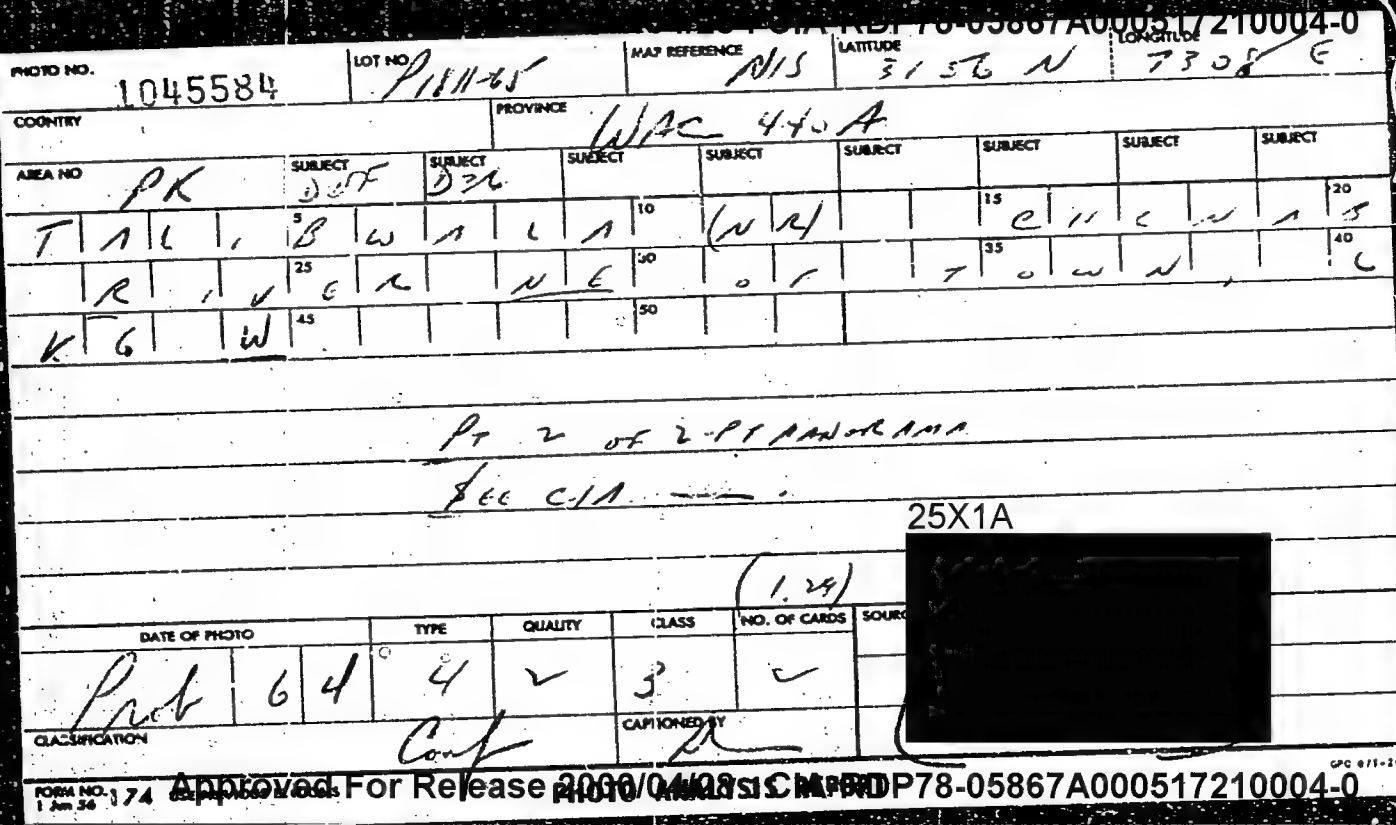 CIA-RDP78-05867A000517210004-0
PHOTO NO. 1045584 LOT NO P1811-65 MAP REFERENCE NIS LATITUDE 31 56 N LONGITUDE 73 08 E
COUNTRY PROVINCE WAC 440 A
AREA NO PK SUBJECT SUBJECT SUBJECT SUBJECT SUBJECT SUBJECT SUBJECT SUBJECT
T A L I 5 B W A L A 10 (NR) 15 C H E N A B 20
R I V 25 E R N E 30 O F T O W N, 35 40
K G W 45 50
PT 2 OF 2-PT PANORAMA
SEE CIA
25X1A
(1.24)
DATE OF PHOTO TYPE QUALITY CLASS NO. OF CARDS
Prob 64 4 2 3
CLASSIFICATION Conf CAPTIONED BY
FORM NO. 1 Jun 56 374 PHOTO ANALYSIS
Approved For Release 2000/04/08 : CIA-RDP78-05867A000517210004-0